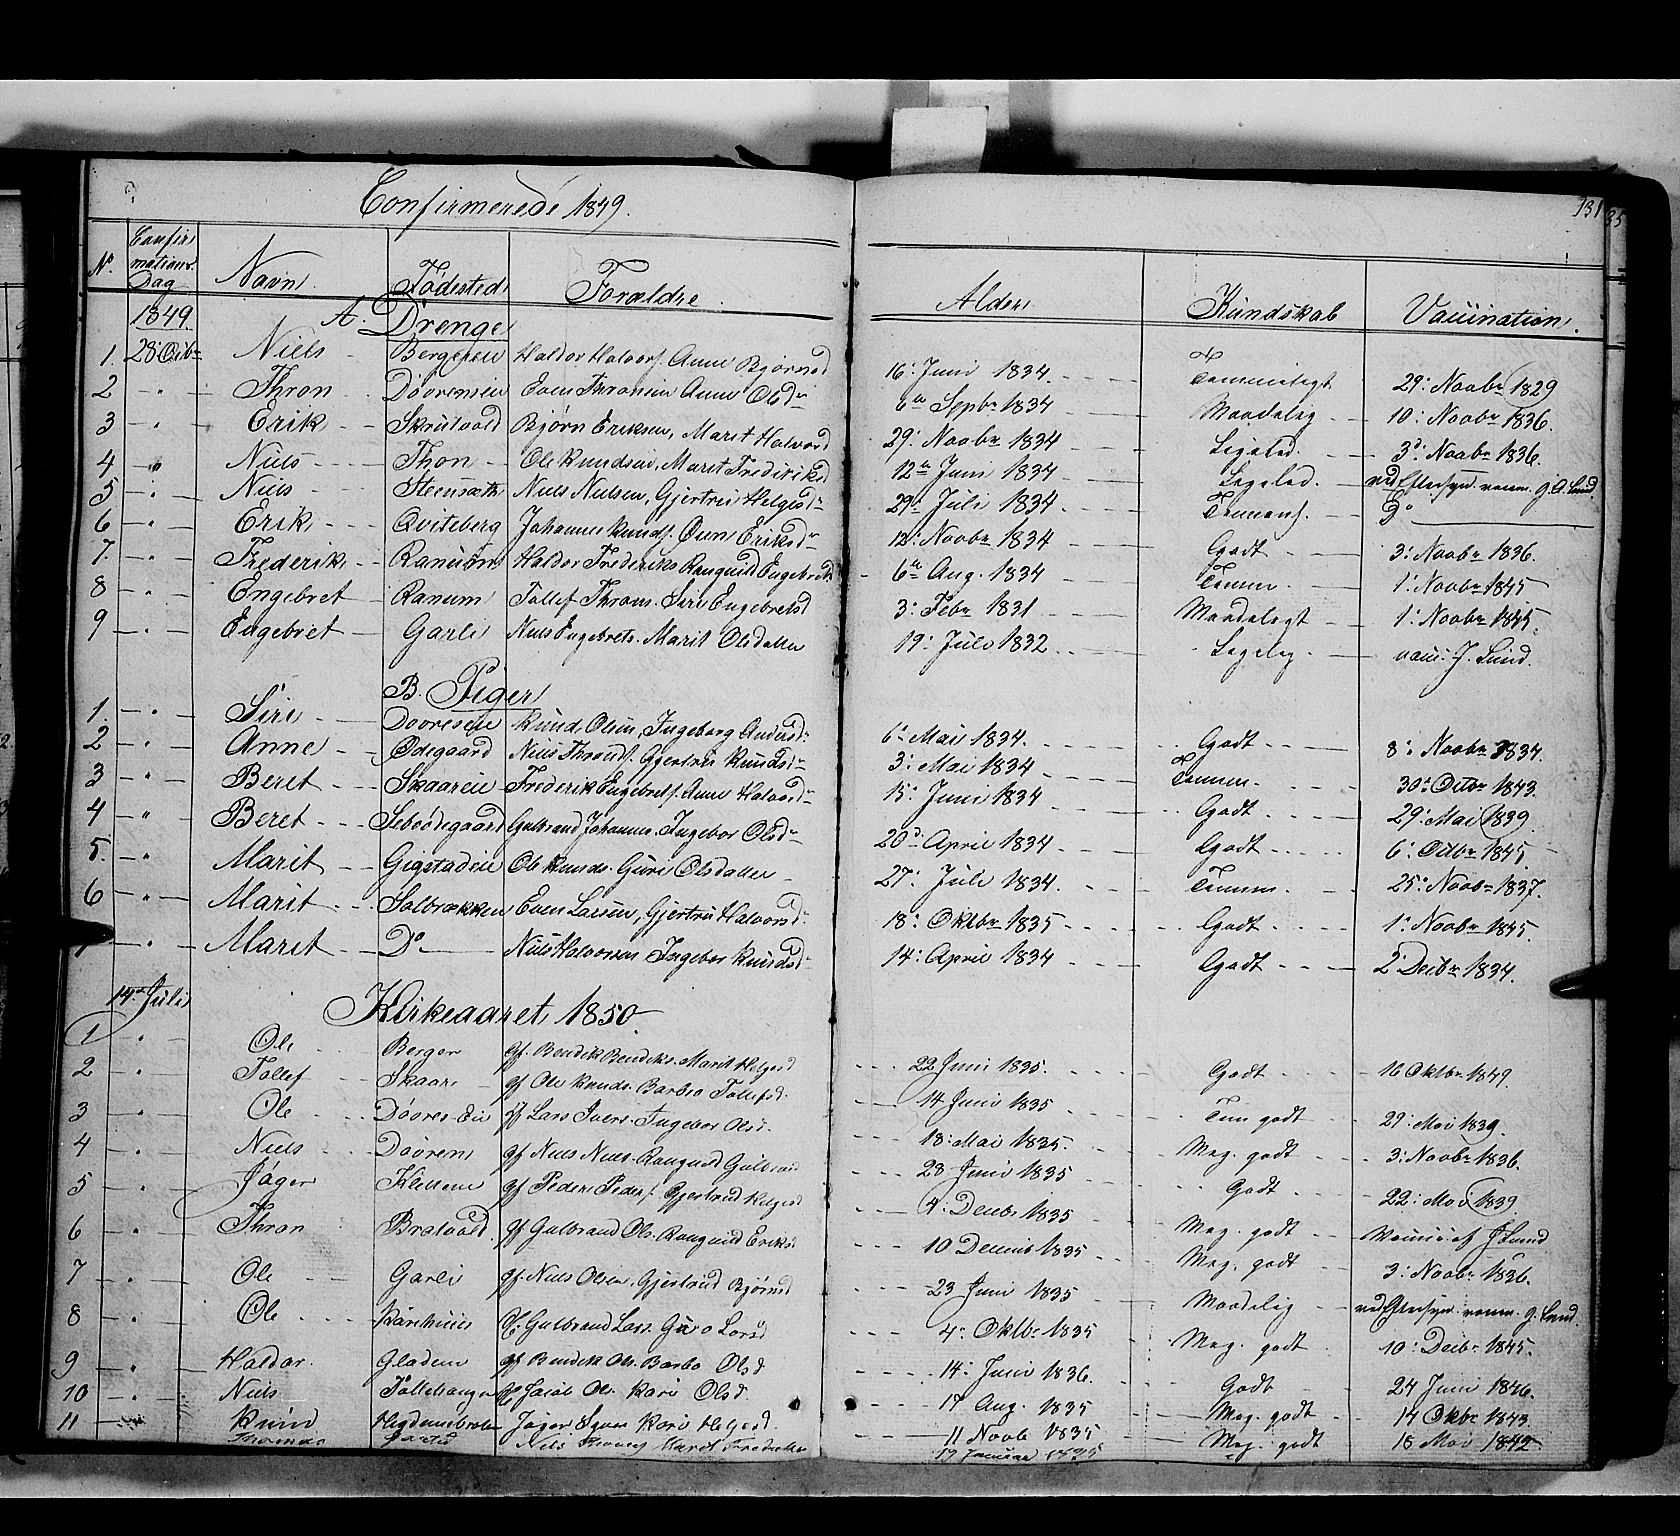 Confirmerede 1849.
131 35
No. Confir mations Dag Navn. Fødested Forældre. Alder. Kundskab Vaccination.
1849. A. Drenge
1. 28: Octbr Niels Bergeseie Haldor Halvors. Anne Bjørnsd 16: Juni 1834. Temmeligt 29: Novbr 1829
2 " Thron Dovreneie Even Thronsen Anne Olsdr 6te Septbr 1834 Maadelig 10: Novbr 1836.
3 " Erik Skrutvold Bjørn Eriksen, Marit Halvord 29: Novbr 1834 Ligeled. 3d: Novbr 1836.
4 " Niels Thon Ole Knudsen, Marit Frederiksd 12te Juni 1834 Ligeled. ved Eftersyn vacc. J. Lund
5 " Niels Steensæth Niels Nielsen, Gjertru Helgesdr 29de Juli 1834 Temm. Do
6 " Erik Qviteberg Johannes Knuds. Eriksdr 12: Novbr 1834 Godt 3: Novbr 1836.
7. " Frederik Ranum Haldor Frederiks Rangnild Engebretsd 6te Aug. 1834 Temm. 1: Novbr 1845
8 " Engebret Ranum Tollef Throns. Siri Engebretsd 3: Febr 1831 Maadeligt 1: Novbr 1845.
9 " Engebret Garli Niels Engebrets. Marit Olsdatter 19: Juli 1832 Ligelig. vacc. J. Lund.
B. Piger
1. " Siri Dovreseie Knud Olsen, Ingeborg Andersdr 6te Mai 1834. Godt 8: Novbr 1834.
2 " Anne Ødegaard Niels Throns. Gjertru Knudsdr 3: Mai 1834 Temm. 30te Octbr 1843.
3 " Beret Skaareie Frederik Engebrets. Anne Halvordr 15: Juni 1834 Godt 29: Mai 1839.
4 " Beret Sebødegaard Gulbrand Johannes. Ingebor Olsdr 20d: April 1834 Godt 6: Octbr 1845
5. " Marit Gigstadeie Ole Knuds. Guri Olsdatter 27: Juli 1834. Temm. 25: Novbr 1837.
6 " Marit Solbrækken Even Larsen, Gjertru Halvorsdr 18: Oktbr 1835 Godt 1: Novbr 1845.
" Marit Do Niels Halvorsen Ingebor Knudsdr 14: April 1834 Godt 2 Decbr 1834.
14de Juli Kirkeaaret 1850.
1 " Ole Berger Gf. Bendik Bendiks. Marit Helgesd 22 Juni 1835. Godt 10 Oktbr 1849.
2 " Tollef Skaar Gf Ole Knuds. Barbro Tollefsd. 14 Juni 1835 Tem godt 29: Mai 1839.
3 " Ole Dovres Eie Gf Lars Ivers. Ingebor Olsd. 18: Mai 1835. Meg. godt 3: Novbr 1836.
4 " Niels Dovren Gf Niels Niels. Rangnild Gulbrand 28 Juni 1835 Godt 22: Mai 1839.
5 " Jøger Klevene Gf Peder Peders. Gjertrud Helgesd 4: Decbr 1835 Meg. godt Vaccin. af J Lund
6 " Thron Bratvold. Gf Gulbrand Ols. Rangnild Eriksd 10 Decmb 1835 Meg. godt 3: Novbr 1836.
7 " Ole Garli Gf. Niels Olsen, Gjertrud Bjørnsd 23 Juni 1835 Maadelig ved Eftersyn vacc. J. Lund.
8 " Ole Gf. Gulbrand Lars. Guro Larsd 4: Oktbr 1835 Meg. godt 10: Decbr 1845.
9 " Haldor. Gladem Gf Bendik Ols. Barbo Olsd 14: Juni 1836. Godt 24 Juni 1846.
10 " Niels Tollehaugen Gf Jacob Ols. Kari Olsd. 17 Aug. 1835 Meg. godt 14 Oktbr 1843
11 " Knud Hegdenebraten Jøger Kari Helgesd. 11 Novb 1835 Meg. godt 18 Mai 1842
Thomas Niels Marit Frederiksd 19 Januar 1835